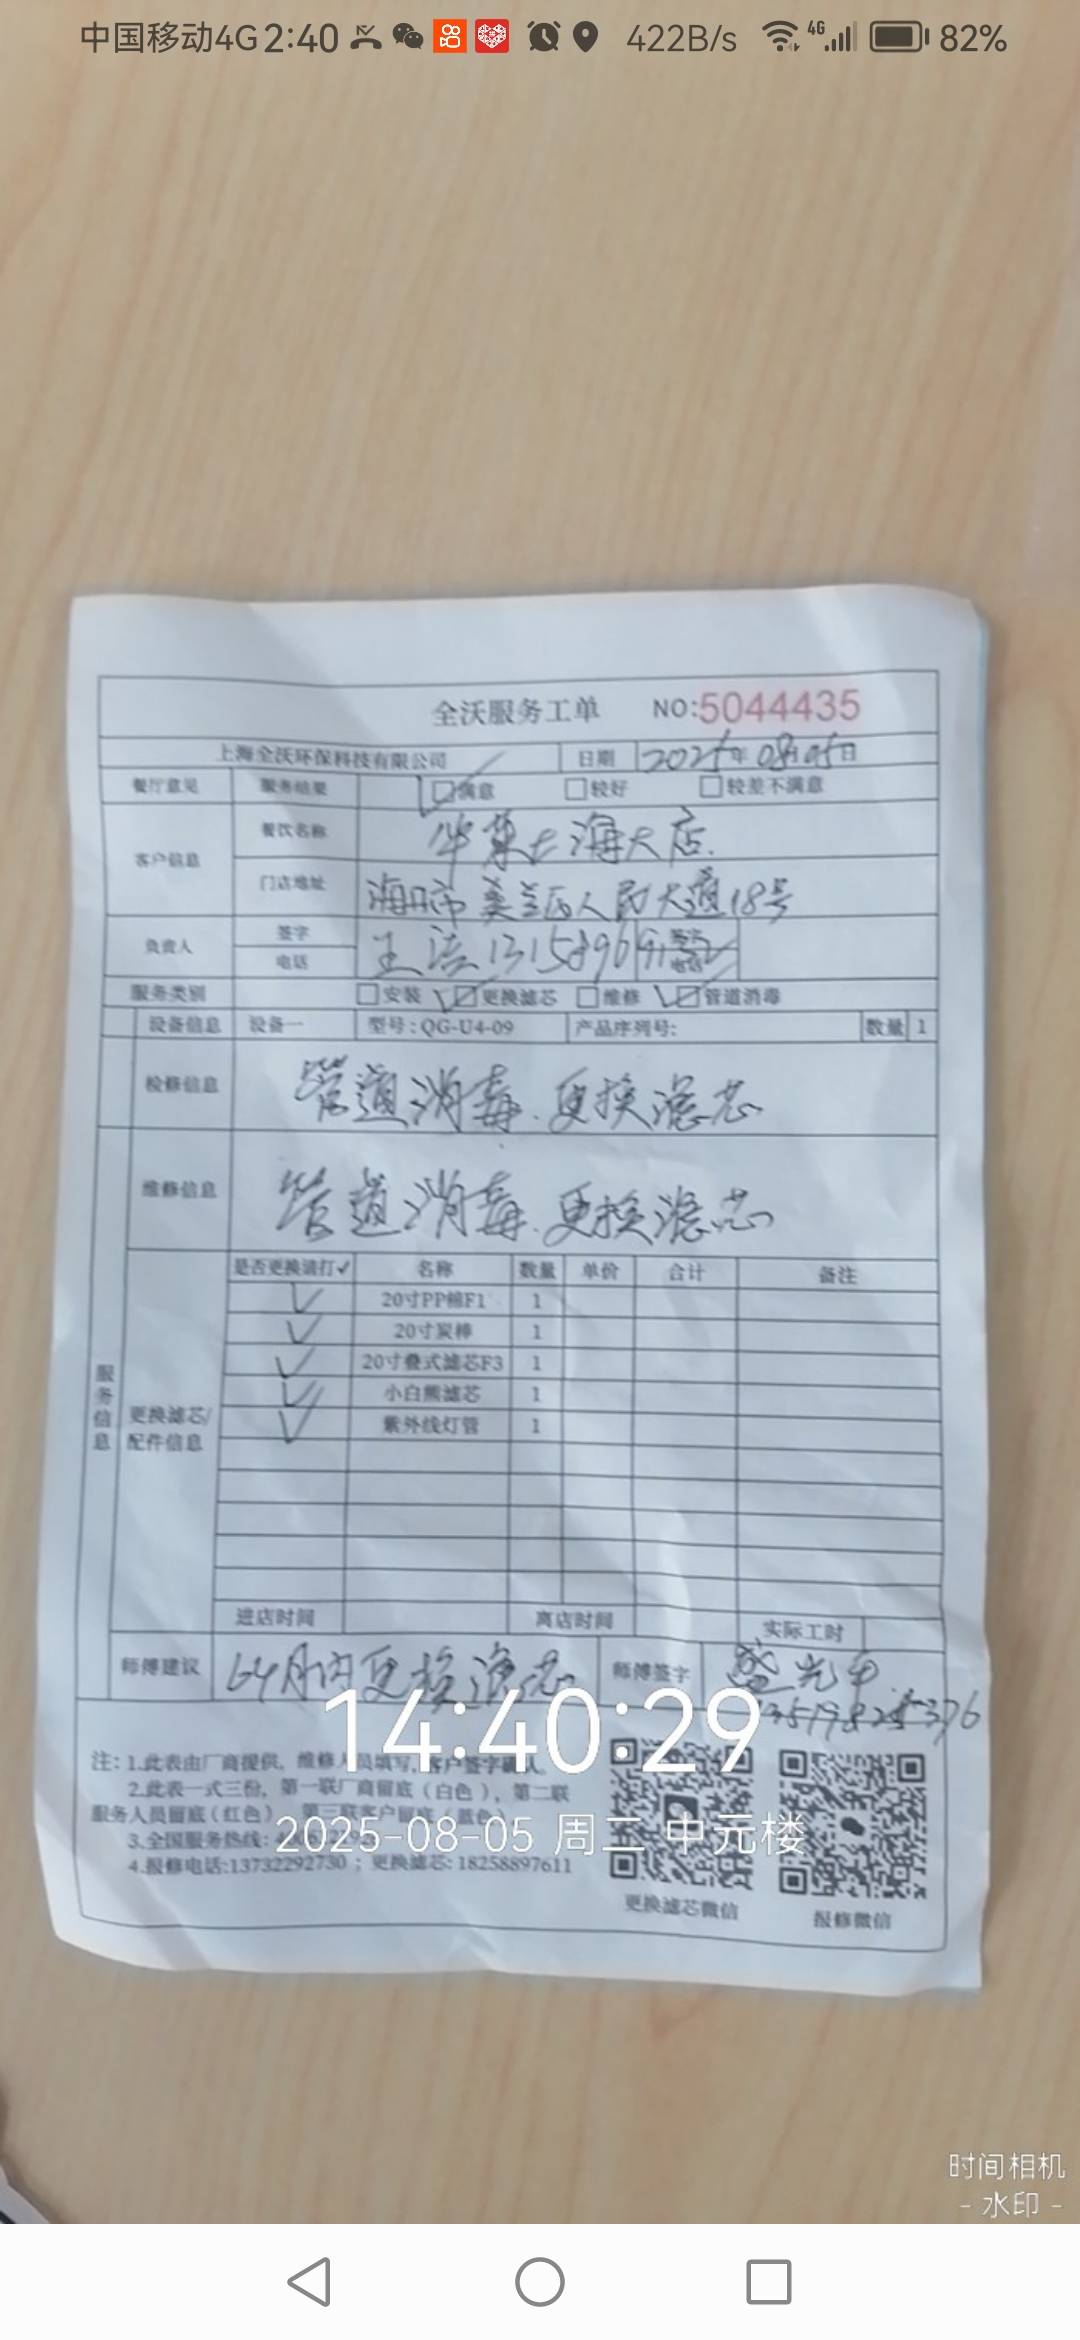 中国移动4G 2:40 422B/s 4G 82%
全沃服务工单 NO:5044435
上海全沃环保科技有限公司 日期 2025年08月05日
餐厅意见 服务结果 满意 较好 较差不满意
客户信息 餐饮名称 华莱士海大店.
门店地址 海口市美兰区人民大道18号
负责人 签字 王 签字
电话 电话
服务类别 安装 更换滤芯 维修 管道消毒
设备信息 设备一 型号:QG-U4-09 产品序列号: 数量 1
检修信息 管道消毒.更换滤芯
维修信息 管道消毒.更换滤芯
服务信息
更换滤芯/配件信息
是否更换请打✓ 名称 数量 单价 合计 备注
✓ 20寸PP棉F1 1
✓ 20寸炭棒 1
✓ 20寸叠式滤芯F3 1
✓ 小白熊滤芯 1
✓ 紫外线灯管 1
进店时间 离店时间 实际工时
师傅建议 6个月内更换滤芯 师傅签字 盛光
14:40:29
注: 1.此表由厂商提供, 维修人员填写, 客户签字确认。
2.此表一式三份, 第一联厂商留底(白色), 第二联
服务人员留底(红色), 第三联客户留底(蓝色)
3.全国服务热线:
2025-08-05 周二 中元楼
4.报修电话:13732292730 ; 更换滤芯: 18258897611
更换滤芯微信 报修微信
时间相机
- 水印 -